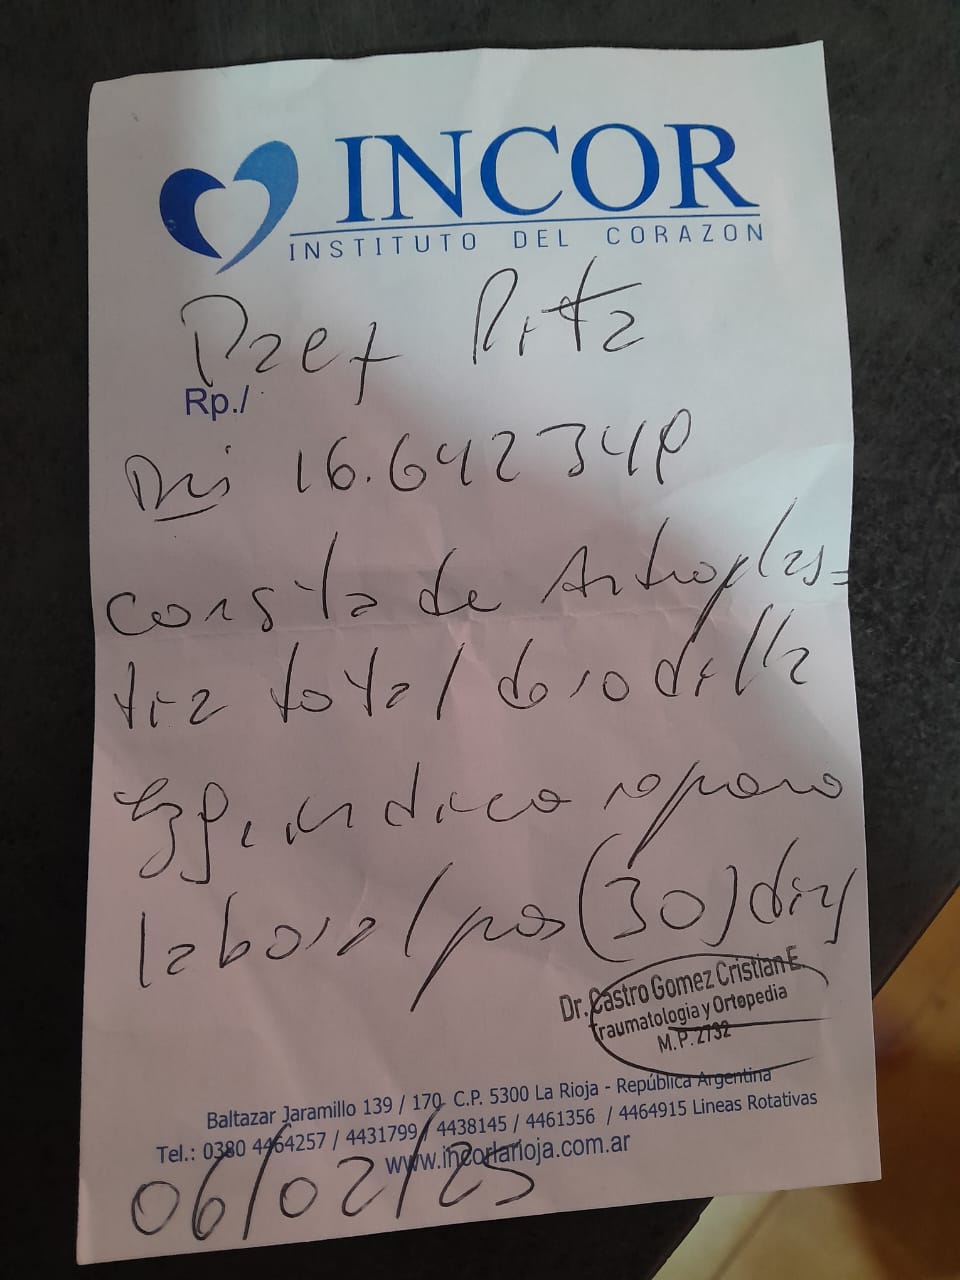 INCOR
INSTITUTO DEL CORAZON
Rita
Rp./
DNI 16.642348
consta de Artroplas=
tia total de rodilla
Izq. indico reposo
laboral por (30) dias
Dr. Castro Gomez Cristian E.
Traumatologia y Ortopedia
M.P. 2732
Baltazar Jaramillo 139 / 170 C.P. 5300 La Rioja - República Argentina
Tel.: 0380 4464257 / 4431799 / 4438145 / 4461356 / 4464915 Lineas Rotativas
www.incorlarioja.com.ar
06/02/25